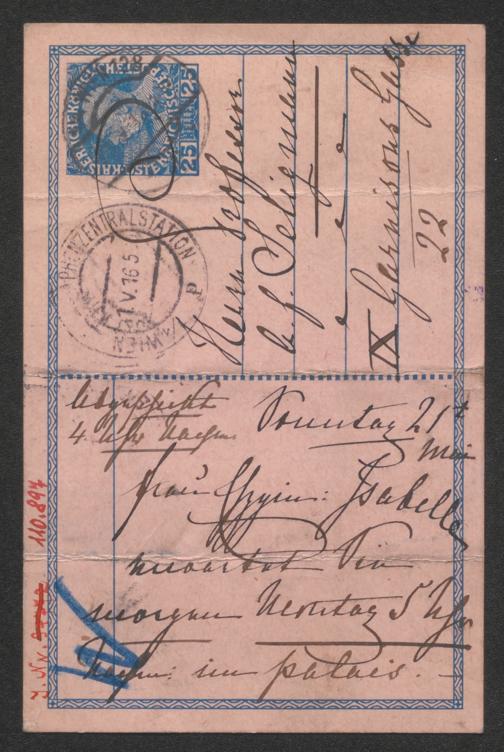 KAISERLICHE KÖNIGLICHE
ÖSTERREICHISCHE POST
25 HELLER 25
138
ZENTRALSTATION P
1.V.16 5
WIEN
Herrn Professor
A. F. Seligmann
IX Garnisons Gasse
22
Abgeschickt
4 Uhr Nachm.
Sonntag 21t
Mai
Frau Isabella
erwartet Sie
morgen Montag 5 Uhr
Nachm: im Palais.
J.N. 110.894